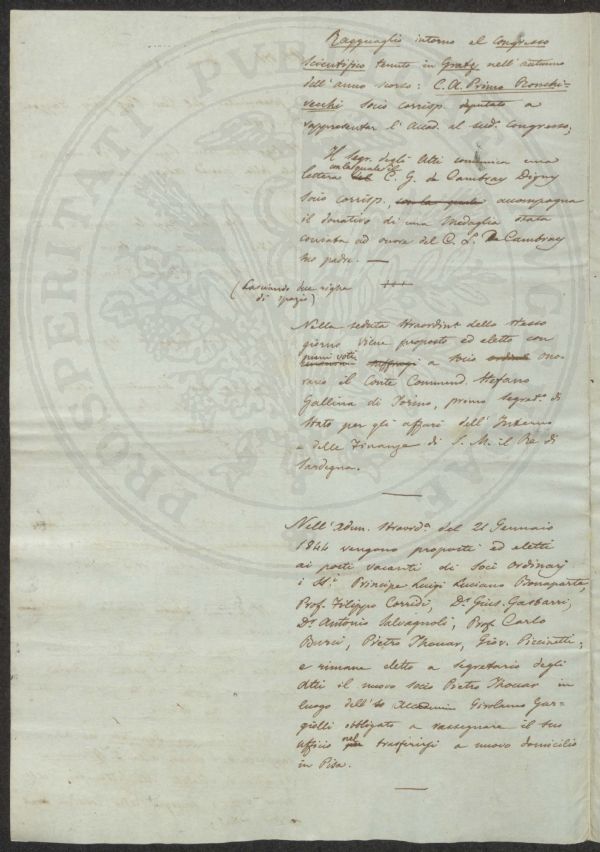 Ragguaglio intorno al Congresso
scientifico tenuto in Gratz nell'autunno
dell'anno scorso: C. A. Primo Ronchi-
vecchi Socio corrisp. deputato a
rappresentar l'Accad. al sud. Congresso;
Il Segr. degli Atti comunica una
con la quale il
lettera C. G. de Cambray Digny
Socio corrisp., con la quale accompagna
il donativo di una Medaglia stata
coniata ad onore del C. L. De Cambray
suo padre. —
(Lasciando due righe
di spazio)
+++
Nella seduta straordinª dello stesso
giorno viene proposto ed eletto con
pieni voti
suffragi a Socio ordinº ono-
rario il Conte Commend. Stefano
Gallina di Torino, primo segretº di
Stato per gli affari dell'Interno
e delle Finanze di S. M. il Re di
Sardegna.
Nell'Adun. straordª del 21 Gennaio
1844 vengono proposti ed eletti
ai posti vacanti di Soci Ordinarj
i SSi Principe Luigi Luciano Bonaparte,
Prof. Filippo Corridi, Dr Gius. Gasbarri,
Dr Antonio Salvagnoli, Prof. Carlo
Burci, Pietro Thouar, Giov. Piccinetti;
e rimane eletto a segretario degli
Atti il nuovo Socio Pietro Thouar in
luogo dell' Girolamo Gar=
giolli obbligato a rassegnare il suo
nel
ufficio trasferirsi a nuovo domicilio
in Pisa.
PROSPERITATI PUBLICAE